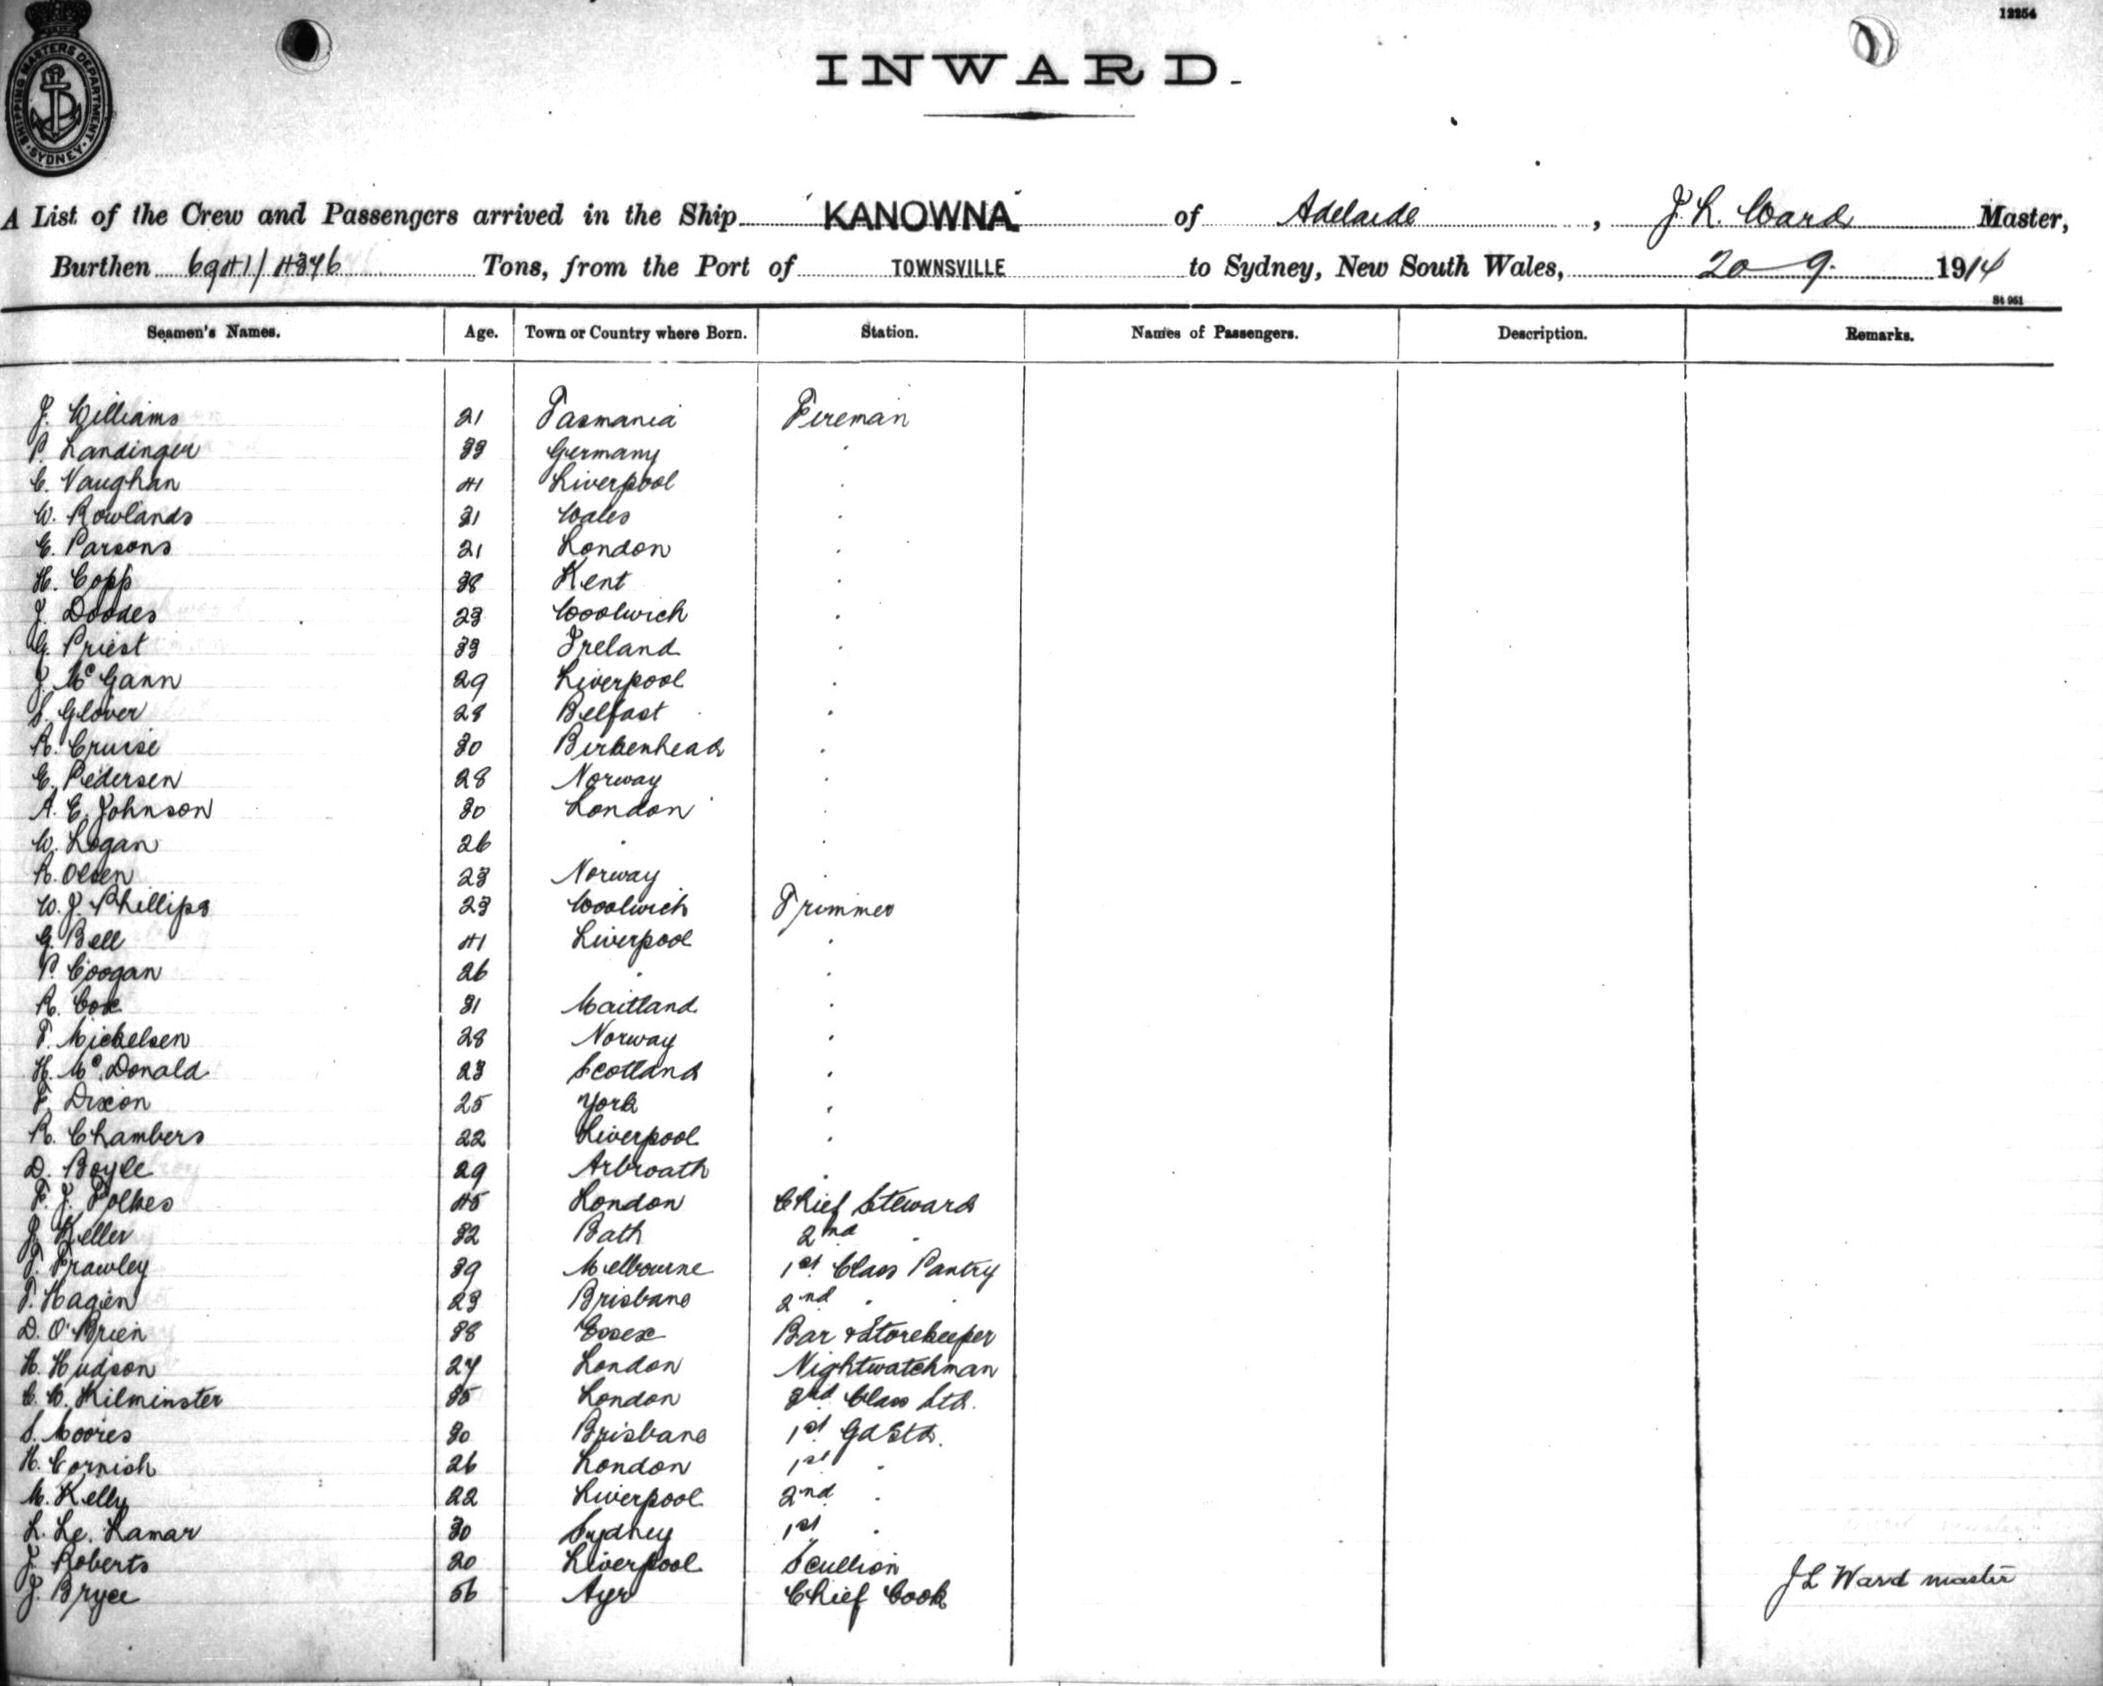 12254
SHIPPING MASTERS DEPARTMENT
SYDNEY
INWARD.
A List of the Crew and Passengers arrived in the Ship "KANOWNA" of Adelaide, J. L. Ward Master,
Burthen 6941/4346 Tons, from the Port of TOWNSVILLE to Sydney, New South Wales, 20 9. 1914
St 961
Seamen's Names. Age. Town or Country where Born. Station. Names of Passengers. Description. Remarks.
J. Williams 21 Tasmania Fireman
P. Landinger 33 Germany "
C. Vaughan 41 Liverpool "
W. Rowlands 31 Wales "
E. Parsons 21 London "
H. Copp 38 Kent "
J. Doodes 23 Woolwich "
G. Priest 33 Ireland "
J. McGann 29 Liverpool "
S. Glover 28 Belfast "
R. Cruise 30 Birkenhead "
E. Pedersen 28 Norway "
A. E. Johnson 30 London "
W. Logan 26 " "
R. Olsen 23 Norway "
W. J. Phillips 23 Woolwich Trimmer
G. Bell 41 Liverpool "
P. Coogan 26 " "
R. Cox 31 Maitland "
T. Mickelsen 28 Norway "
H. McDonald 23 Scotland "
F. Dixon 25 York "
R. Chambers 22 Liverpool "
D. Boyle 29 Arbroath "
F. J. Folkes 45 London Chief Steward
J. Keller 32 Bath 2nd "
T. Frawley 39 Melbourne 1st Class Pantry
T. Hagen 23 Brisbane 2nd " "
D. O'Brien 38 Essex Bar & Storekeeper
H. Hudson 27 London Nightwatchman
C. W. Kilminster 35 London 3rd Class Std.
S. Moores 30 Brisbane 1st Gd Std.
H. Cornish 26 London 1st "
M. Kelly 22 Liverpool 2nd "
L. Le. Lamar 30 Sydney 1st "
J. Roberts 20 Liverpool Scullion
J. Bryce 56 Ayr Chief Cook
J L Ward master